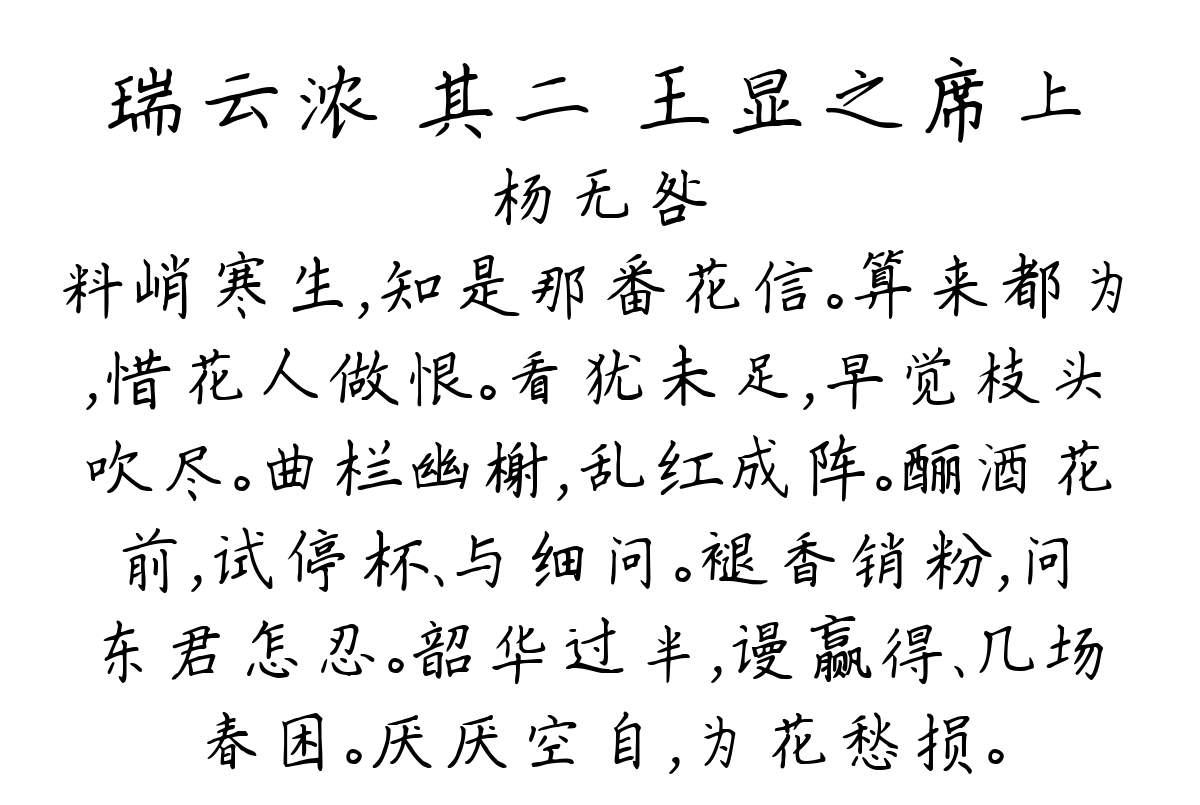 瑞云浓 其二 王显之席上
杨无咎
料峭寒生,知是那番花信。算来都为
,惜花人做恨。看犹未足,早觉枝头
吹尽。曲栏幽榭,乱红成阵。酾酒花
前,试停杯、与细问。褪香销粉,问
东君怎忍。韶华过半,谩赢得、几场
春困。厌厌空自,为花愁损。